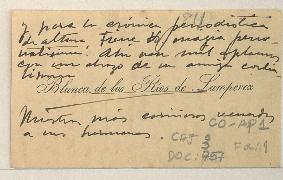 y para la crónica periodística
de altura tiene V. magia perso-
nalísima! Ahí van mil aplausos
con un abrazo de su amiga
Blanca de los Ríos de Lampérez
Nuestros más cariñosos recuerdos
a sus hermanas.
CO-AP1
CAJ 3
DOC: 757